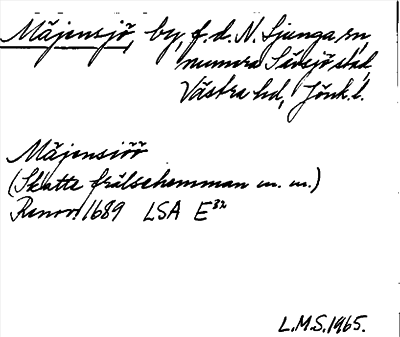 Mäjensjö, by, f.d. N. Ljunga sn,
numera Sävsjö stad,
Västra hd, Jönk. l.
Mäjensiöö
(Skatte frälsehemman m. m.)
Renov. 1689 LSA E
L.M.S. 1965.